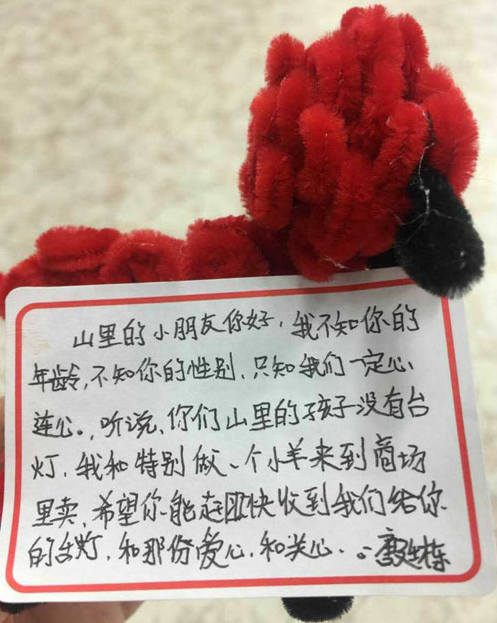 山里的小朋友你好，我不知你的
年龄，不知你的性别，只知我们一定心
连心。，听说，你们山里的孩子没有台
灯，我和特别做、个小羊来到商场
里卖，希望你能赶快收到我们给你
的台灯，和那份爱心，和关心。。